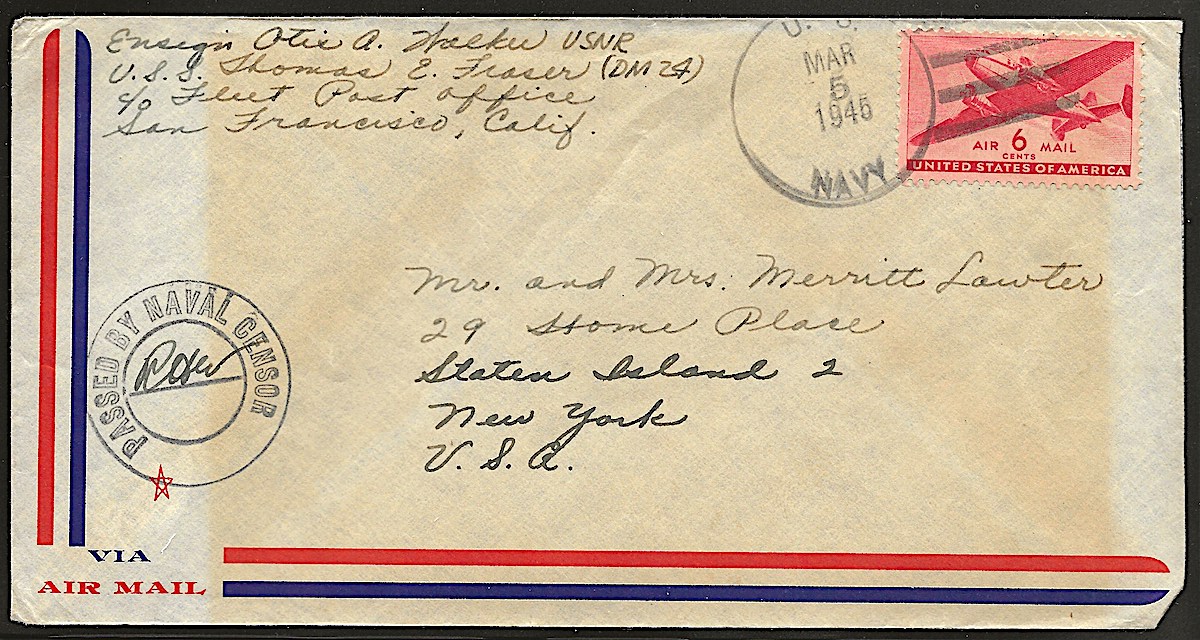 Ensign Otis A. Walker USNR
U.S.S. Thomas E. Fraser (DM 24)
c/o Fleet Post Office
San Francisco, Calif.
U. S.
MAR
5
1945
NAVY
AIR 6 MAIL
CENTS
UNITED STATES OF AMERICA
Mr. and Mrs. Merritt Lawter
29 Home Place
Staten Island 2
New York
U. S. A.
PASSED BY NAVAL CENSOR
VIA
AIR MAIL